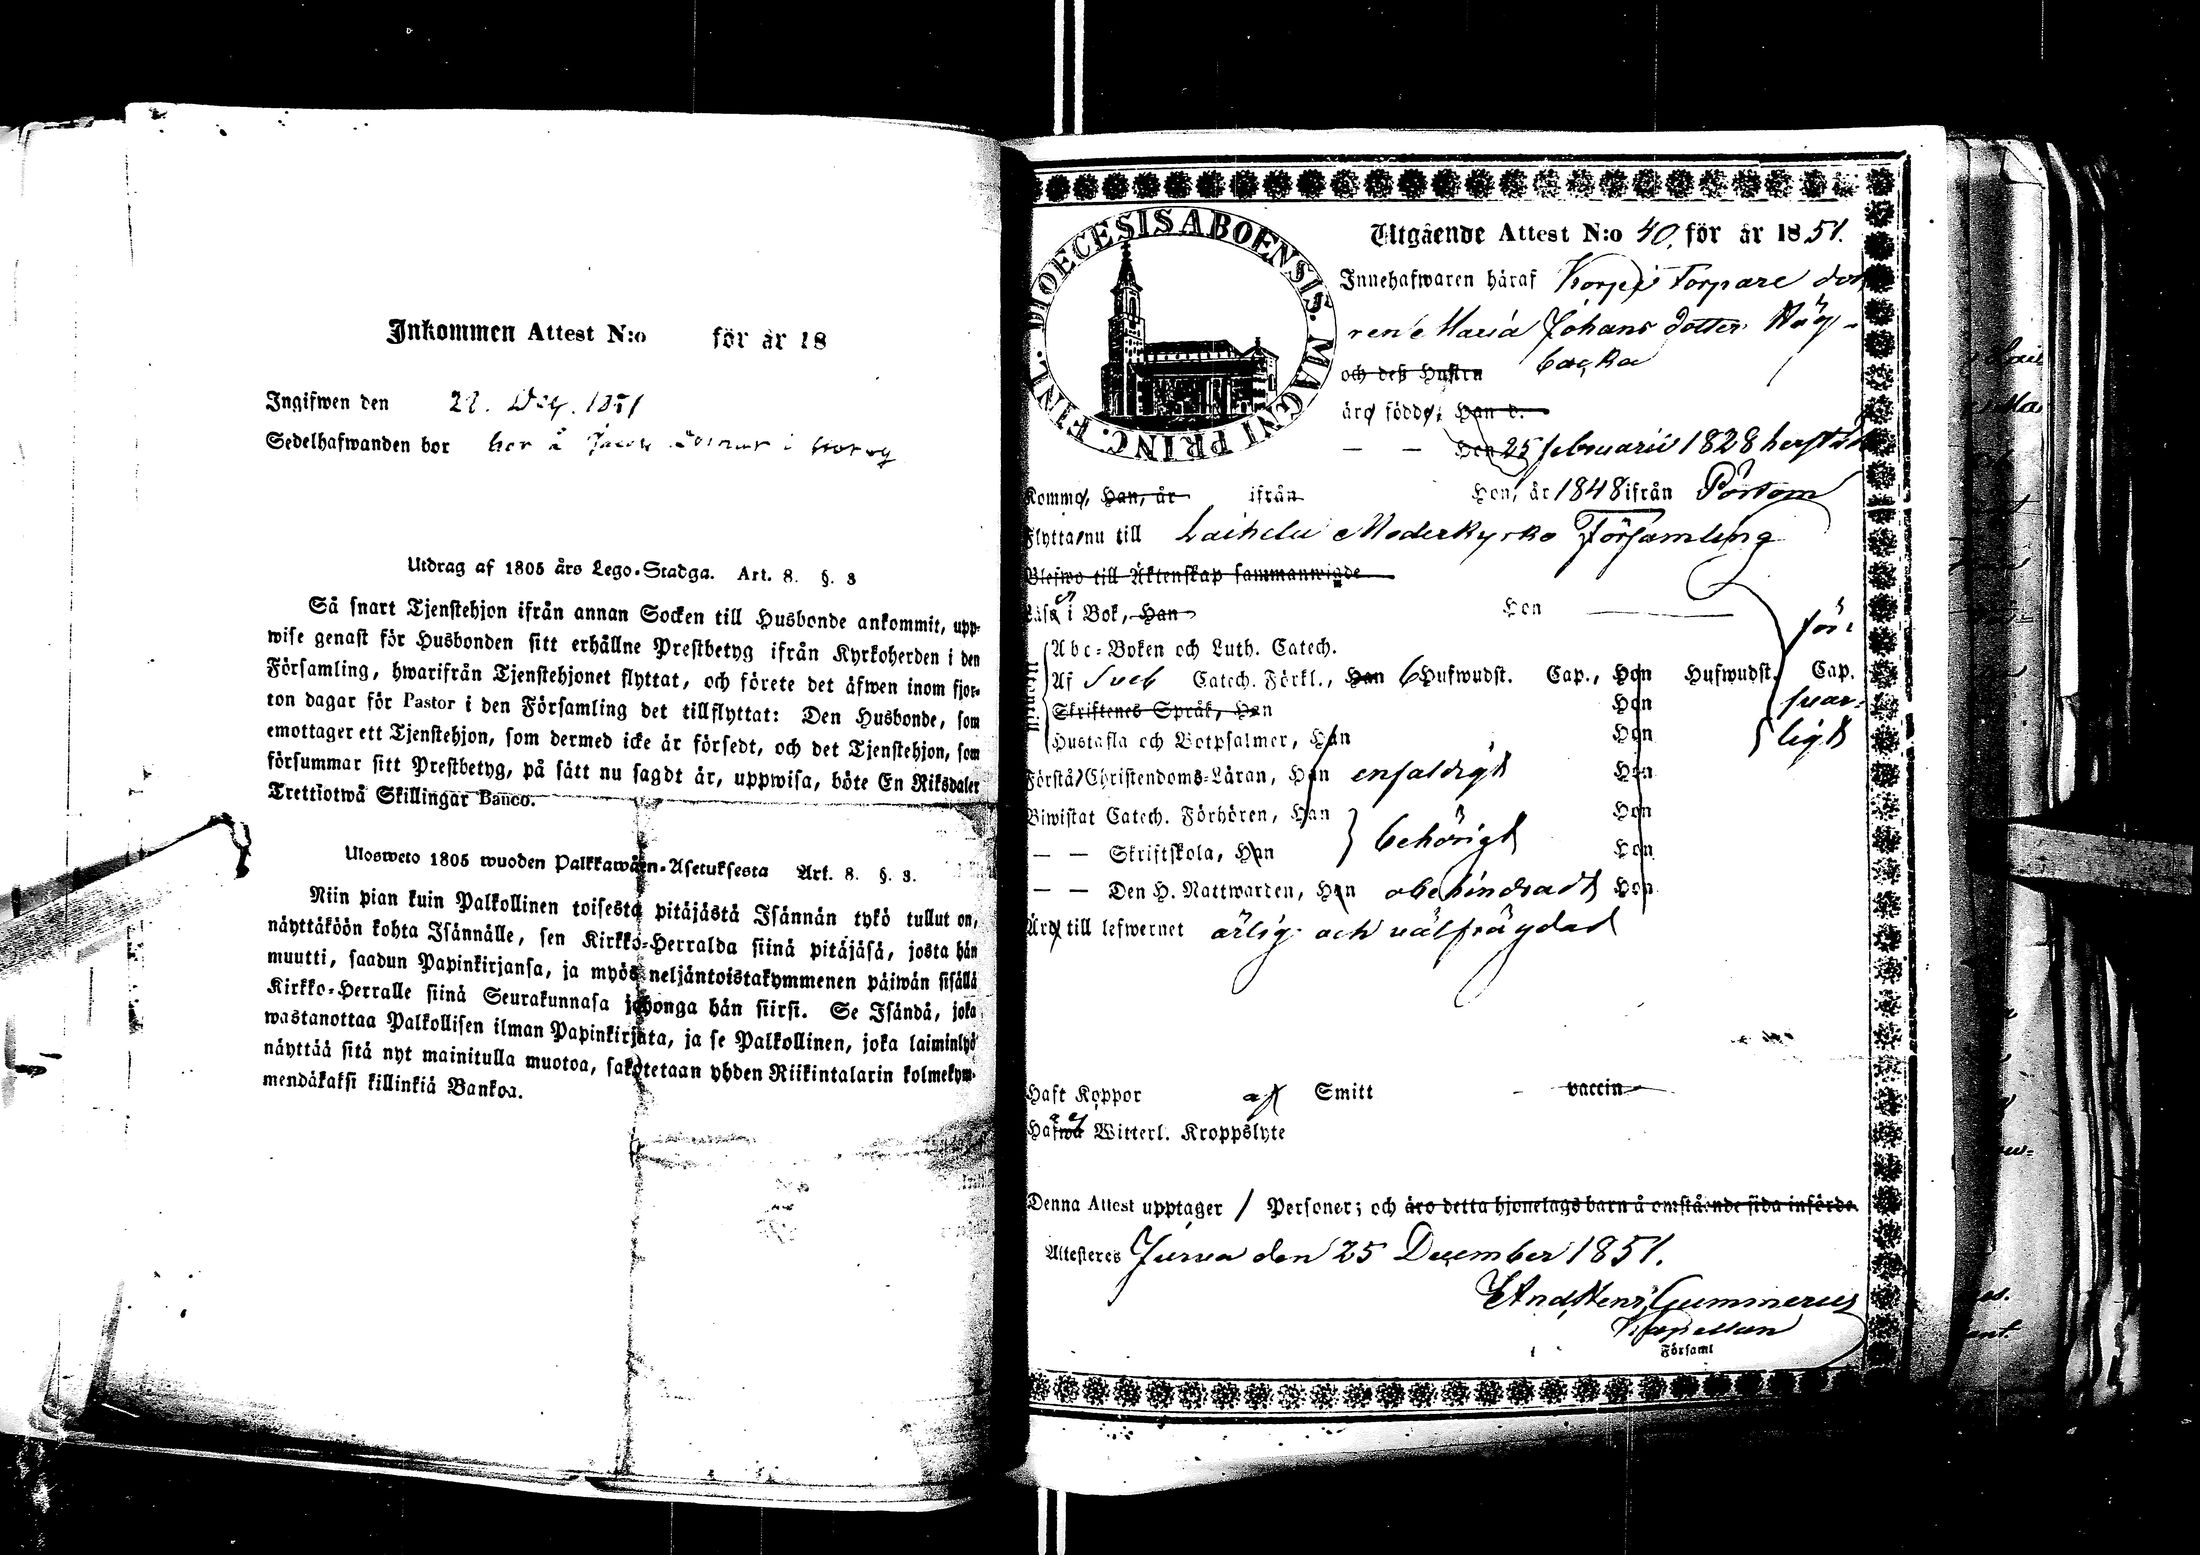 Inkommen Attest N:o för år 18
Ingifwen den 1851
Sedelhafwanden bor hos
Utdrag af 1805 års Lego-Stadga. Art. 8. §. 3
Så snart Tjenstehjon ifrån annan Socken till Husbonde ankommit, upp-
wise genast för Husbonden sitt erhållne Prestbetyg ifrån Kyrkoherden i den
Församling, hwarifrån Tjenstehjonet flyttat, och förete det äfwen inom fjor-
ton dagar för Pastor i den Församling det tillflyttat: Den Husbonde, som
emottager ett Tjenstehjon, som dermed icke är försedt, och det Tjenstehjon, som
försummar sitt Prestbetyg, på sätt nu sagdt är, uppwisa, böte En Riksdaler
Trettiotwå Skillingar Banco.
Ulosweto 1805 wuoden Palkkawäen-Asetuksesta Art. 8. §. 3.
Niin pian kuin Palkollinen toisesta pitäjästä Isännän tykö tullut on,
näyttäköön kohta Isännälle, sen Kirkko-Herralda siinä pitäjäsä, josta hän
muutti, saadun Papinkirjansa, ja myös neljäntoistakymmenen päiwän sisällä
Kirkko-Herralle siinä Seurakunnasa johonga hän siirsi. Se Isändä, joka
wastanottaa Palkollisen ilman Papinkirjata, ja se Palkollinen, joka laiminlyö
näyttää sitä nyt mainitulla muotoa, sakotetaan yhden Riikintalarin kolmekym-
mendäkaksi killinkiä Bankoa.
FINL. DIOECESIS ABOENSIS. MAGNI PRINC.
Utgående Attest N:o 40. för år 1851.
Innehafwaren häraf Torpare dot
ren Maria Johans dotter Råg-
och deß Hustru backa
äro födde; Han d.
— — Hon 25 februarii 1828 härstäd
Komme, Han, år ifrån Hon, år 1848 ifrån Pörtom
Flytta nu till Laihela Moderkyrko Församling
Blefwo till Äktenskap sammanwigde
Läsa i Bok, Han Hon för-
Abc-Boken och Luth. Catech.
Af Sveb Catech. Förkl., Han 6 Hufwudst. Cap., Hon Hufwudst. Cap.
Skriftenes Språk, Han Hon svar-
Hustafla och Botpsalmer, Han Hon ligt
Förstå Christendoms-Läran, Han enfaldigt Hon
Biwistat Catech. Förhören, Han Hon
— — Skriftskola, Han behörigt Hon
— — Den H. Nattwarden, Han obehindradt Hon
Äro till lefwernet ärlig och välfrägdad
Haft Koppor af Smitt vaccin
Hafwa ej Witterl. Kroppslyte
Denna Attest upptager 1 Personer; och äro detta hjonelags barn å omstående sida införde.
Attesteres Jurva den 25 December 1851.
And. Henr. Gummerus
Kapellan
Församl